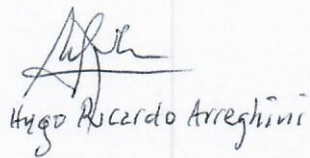 Hugo Ricardo Arreghini